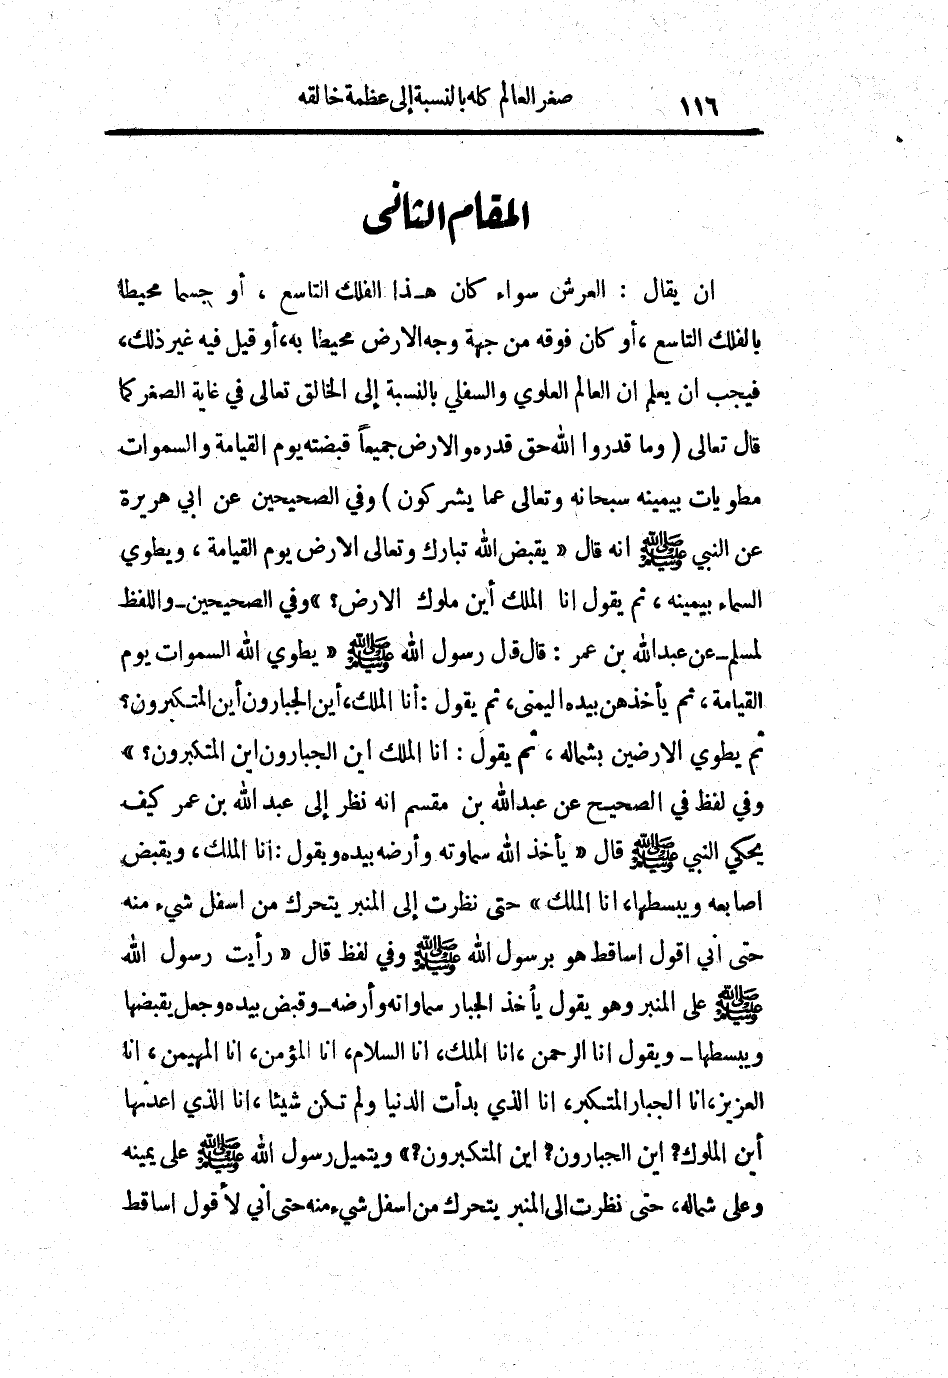 ١١٦ صغر العالم كله بالنسبة إلى عظمة خالقه
المقام الثانى
ان يقال : العرش سواء كان هـذا الفلك التاسع ، أو جسما محيطا
بالفلك التاسع ،أو كان فوقه من جهة وجه الارض محيطا به،أو قيل فيه غير ذلك،
فيجب ان يعلم ان العالم العلوي والسفلي بالنسبة إلى الخالق تعالى في غاية الصغر كما
قال تعالى ( وما قدروا الله حق قدره والارض جميعاً قبضته يوم القيامة والسموات
مطويات بيمينه سبحانه وتعالى عما يشركون ) وفي الصحيحين عن ابي هريرة
عن النبي ﷺ انه قال « يقبض الله تبارك وتعالى الارض يوم القيامة ، ويطوي
السماء بيمينه ، ثم يقول انا الملك أين ملوك الارض؟ »وفي الصحيحين ـ واللفظ
لمسلم ـ عن عبدالله بن عمر : قال قال رسول الله ﷺ « يطوي الله السموات يوم
القيامة ، ثم يأخذهن بيده اليمنى، ثم يقول :أنا الملك،أين الجبارون أين المتكبرون؟
ثم يطوي الارضين بشماله ، ثم يقول : انا الملك اين الجبارون اين المتكبرون؟ »
وفي لفظ في الصحيح عن عبدالله بن مقسم انه نظر إلى عبد الله بن عمر كيف
يحكي النبي ﷺ قال « يأخذ الله سماوته وأرضه بيده ويقول :انا الملك، ويقبض
اصابعه ويبسطها، انا الملك » حتى نظرت إلى المنبر يتحرك من اسفل شيء منه
حتى اني اقول اساقط هو برسول الله ﷺ وفي لفظ قال « رأيت رسول الله
ﷺ على المنبر وهو يقول يأخذ الجبار سماواته وأرضه ـ وقبض بيده وجعل يقبضها
ويبسطها ـ ويقول انا الرحمن ،انا الملك، انا السلام، انا المؤمن، انا المهيمن ، انا
العزيز،انا الجبار المتكبر، انا الذي بدأت الدنيا ولم تكن شيئا ،انا الذي اعدتها
أين الملوك؟ اين الجبارون؟ اين المتكبرون؟» ويتميل رسول الله ﷺ على يمينه
وعلى شماله، حتى نظرت الى المنبر يتحرك من اسفل شيء منه حتى اني لأقول اساقط